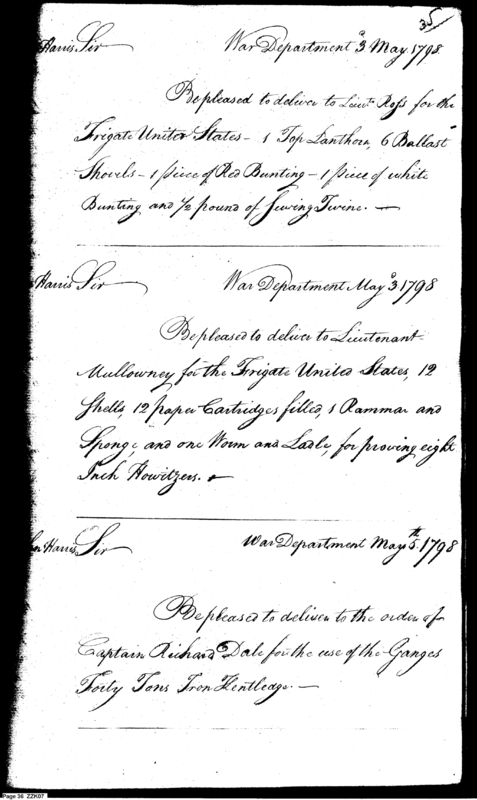 35
Harris Sir War Department 3d May 1798
Be pleased to deliver to Lieut. Ross for the
Frigate United States - 1 Top Lanthorn, 6 Ballast
Shovels - 1 piece of Red Bunting - 1 piece of white
Bunting and 1/2 pound of Sewing Twine. -
Harris Sir War Department May 3d 1798
Be pleased to deliver to Lieutenant
Mullowney for the Frigate United States, 12
Shells, 12 paper Cartridges filled, 1 Rammar and
Sponge, and one Worm and Ladle, for proving eight
Inch Howitzers.
Harris, Sir War Department May 5th 1798
Be pleased to deliver to the order of
Captain Richard Dale for the use of the Ganges
Forty Tons Iron Kentledge. -
Page 36 ZZK07